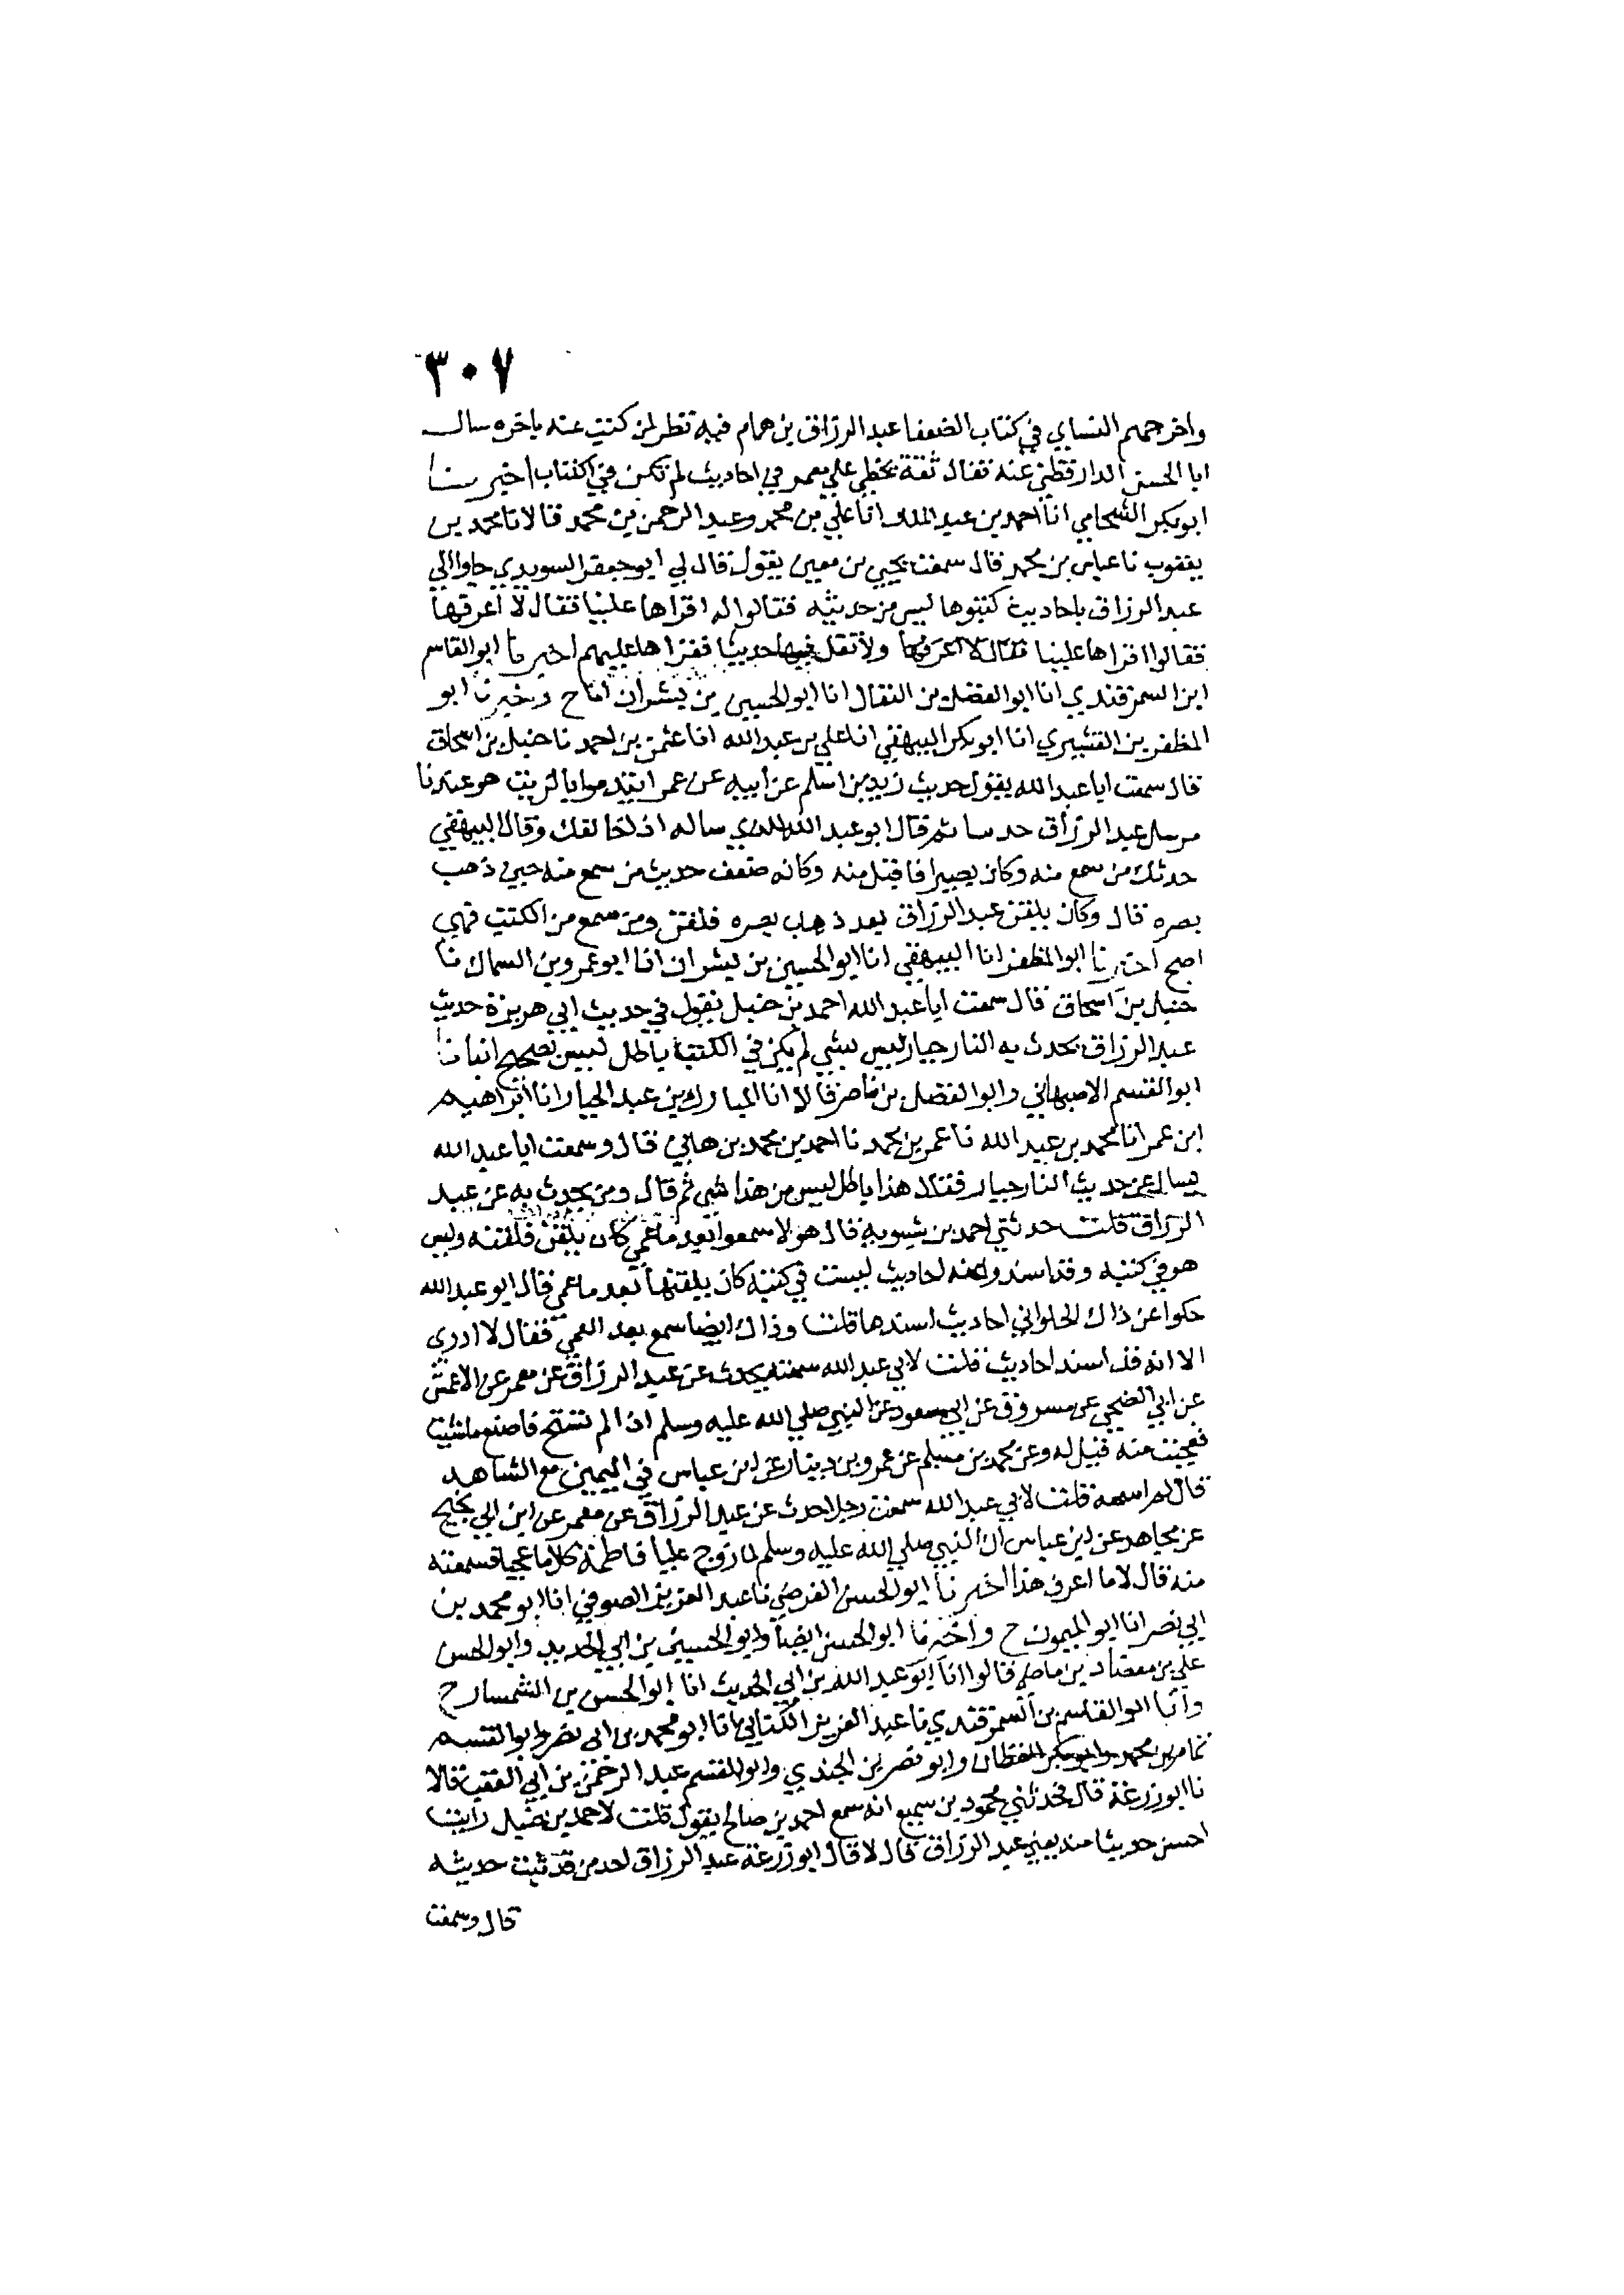 ٣٠٧
واخرجهم النساي في كتاب الضعفا عبد الرزاق بن همام فيه نظر لمن كتب عنه باخره سالت
ابا الحسن الدارقطني عنه فقال ثقة يخطي علي معمر في احاديث لم تكن في الكتاب اخبرنا
ابو بكر الشحامي انا احمد بن عبد الملك انا علي بن محمد وعبد الرحمن بن محمد قالا نا محمد بن
يعقوب نا عباس بن محمد قال سمعت يحيي بن معين يقول قال لي ابو جعفر السويدي جاوا الي
عبد الرزاق باحاديث كتبوها ليس من حديثه فقالوا له اقراها علينا فقال لا اعرفها
فقالوا اقراها علينا فقال لا اعرفها ولا تقل فيها حدثنا فقراها عليهم اخبرنا ابو القاسم
ابن السمرقندي انا ابو الفضل بن البقال انا ابو الحسين بن بشران انا ح واخبرنا ابو
المظفر بن القشيري انا ابو بكر البيهقي انا علي بن عبد الله انا عثمن بن احمد نا حنبل بن اسحاق
قال سمعت ابا عبد الله يقول حديث زيد بن اسلم عن ابيه عن عمر ايتدموا بالزيت هو عندنا
مرسل عبد الرزاق حدثنا ثم قال ابو عبد الله للذي ساله اذ لخالفك وقال البيهقي
حدثك من سمع منه وكان بصيرا فاقبل منه وكانه ضعف حديث من سمع منه حين ذهب
بصره قال وكان يلقن عبد الرزاق بعد ذهاب بصره فلقن ومن سمع من الكتب فهي
اصح اخبرنا ابو المظفر انا البيهقي انا ابو الحسين بن بشران انا ابو عمرو بن السماك نا
حنبل بن اسحاق قال سمعت ابا عبد الله احمد بن حنبل يقول في حديث ابي هريرة حديث
عبد الرزاق يحدث به النار جبار ليس بشي لم يكن في الكتب باطل ليس بصحيح انبانا
ابو القسم الاصبهاني وابو الفضل بن ناصر قالا انا المبارك بن عبد الجبار انا ابراهيم
ابن عمر انا محمد بن عبيد الله نا عمر بن محمد نا احمد بن محمد بن هاني قال وسمعت ابا عبد الله
يسال عن حديث النار جبار فقال هذا باطل ليس من هذا شي ثم قال ومن يحدث به عن عبد
الرزاق قلت حدثني احمد بن شبويه قال هولا سمعوا بعد ما عمي كان يلقن فلقنه وليس
هو في كتبه وقد اسندوا عنه احاديث ليست في كتبه كان يلقنها بعد ما عمي قال ابو عبد الله
حكوا عن ذاك الحلواني احاديث اسندها قلت وذاك ايضا سمع بعد العمي فقال لا ادري
الا انه قد اسند احاديث قلت لابي عبد الله سمعته يحدث عن عبد الرزاق عن معمر عن الاعمش
عن ابي الضحي عن مسروق عن ابي مسعود عن النبي صلي الله عليه وسلم اذا لم تستح فاصنع ما شيت
فعجبت منه قيل له وعن محمد بن مسلم عن عمرو بن دينار عن ابن عباس في اليمين مع الشاهد
قال لم اسمعه قلت لابي عبد الله سمعت رجلا حدث عن عبد الرزاق عن معمر عن ابن ابي نجيح
عن مجاهد عن ابن عباس ان النبي صلي الله عليه وسلم لما زوج عليا فاطمة كلاما عجيبا فسمعته
منه قال لا ما اعرف هذا اخبرنا ابو الحسن الفرضي نا عبد العزيز الصوفي انا ابو محمد بن
ابي نصر انا ابو الميمون ح واخبرنا ابو الحسن ايضا وابو الحسين بن ابي الحديد وابو الحسن
علي بن معضاد بن ماضي قالوا انا ابو عبد الله بن ابي الحديد انا ابو الحسن بن السمسار ح
وانا ابو القاسم بن السمرقندي نا عبد العزيز الكتاني انا ابو محمد بن ابي نصر وابو القسم
تمام بن محمد وابو بكر القطان وابو نصر بن الجندي وابو القسم عبد الرحمن بن ابي العقب قالا
نا ابو زرعة قال فحدثني محمود بن سميع انه سمع احمد بن صالح يقول قلت لاحمد بن حنبل رايت
احسن حديثا منه يعني عبد الرزاق قال لا قال ابو زرعة عبد الرزاق احد من قد ثبت حديثه
قال وسمعت